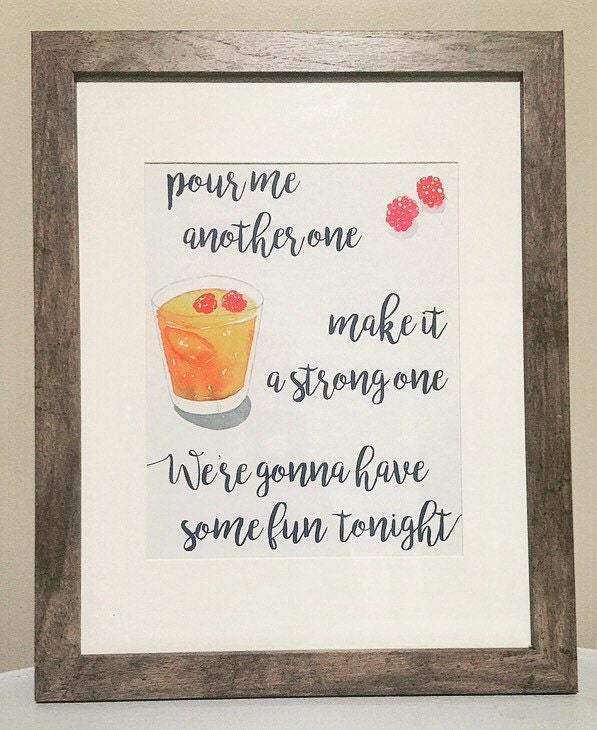 pour me
another one
make it
a strong one
We're gonna have
some fun tonight